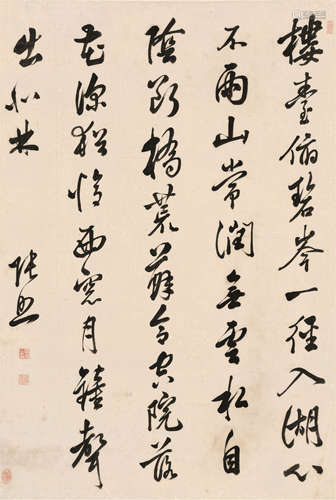 樓臺俯碧岑一徑入湖心
不雨山常潤無雲松自
陰斷橋荒蘚合空院落
花深猶憶西窗月鐘聲
出北林 張照